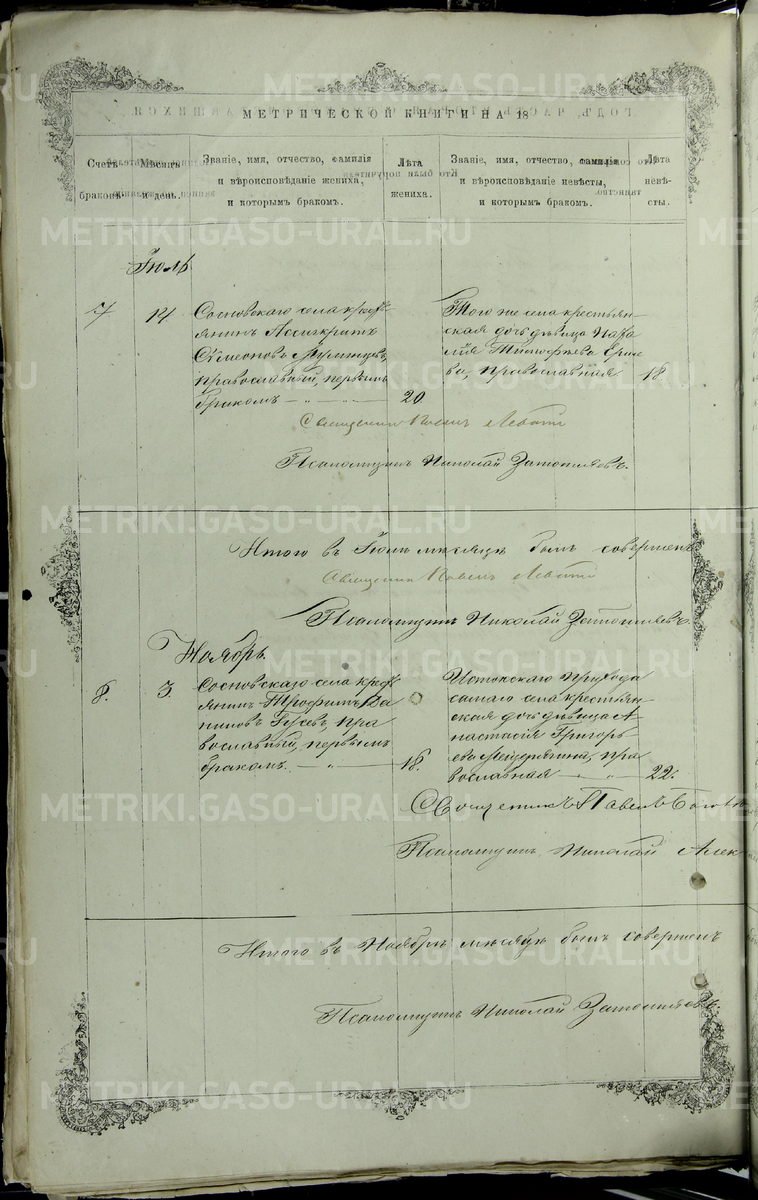 METRIKI.GASO-URAL.RU
МЕТРИЧЕСКОЙ КНИГИ НА 18
Счетъ браковъ.
Мѣсяцъ и день.
Званіе, имя, отчество, фамилія
и вѣроисповѣданіе жениха,
и которымъ бракомъ.
Лѣта
жениха.
Званіе, имя, отчество, фамилія
и вѣроисповѣданіе невѣсты,
и которымъ бракомъ.
Лѣта
невѣ-
сты.
Іюль
7
14
Сосновскаго села кресть
янинъ Ассигкритъ
Сѵмеоновъ
православный, первымъ
бракомъ
20.
Того же села крестьян-
ская дочь дѣвица Ната
лія Тимофѣева
ва, православная
18.
Священникъ Павелъ
Псаломщикъ Николай
Итого въ Іюлѣ мѣсяцѣ былъ совершенъ
Священникъ Павелъ
Псаломщикъ Николай
Ноябрь.
8.
3.
Сосновскаго села кресть
янинъ Трофимъ Да
ниловъ Гусевъ, пра
вославный, первымъ
бракомъ
18.
Истокскаго прихода
самаго села крестьян-
ская дочь дѣвица А
настасія Григорь
ева Мещерягина, пра
вославная
22.
Священникъ Павелъ
Псаломщикъ Николай
Итого въ Ноябрѣ мѣсяцѣ былъ совершенъ
Псаломщикъ Николай